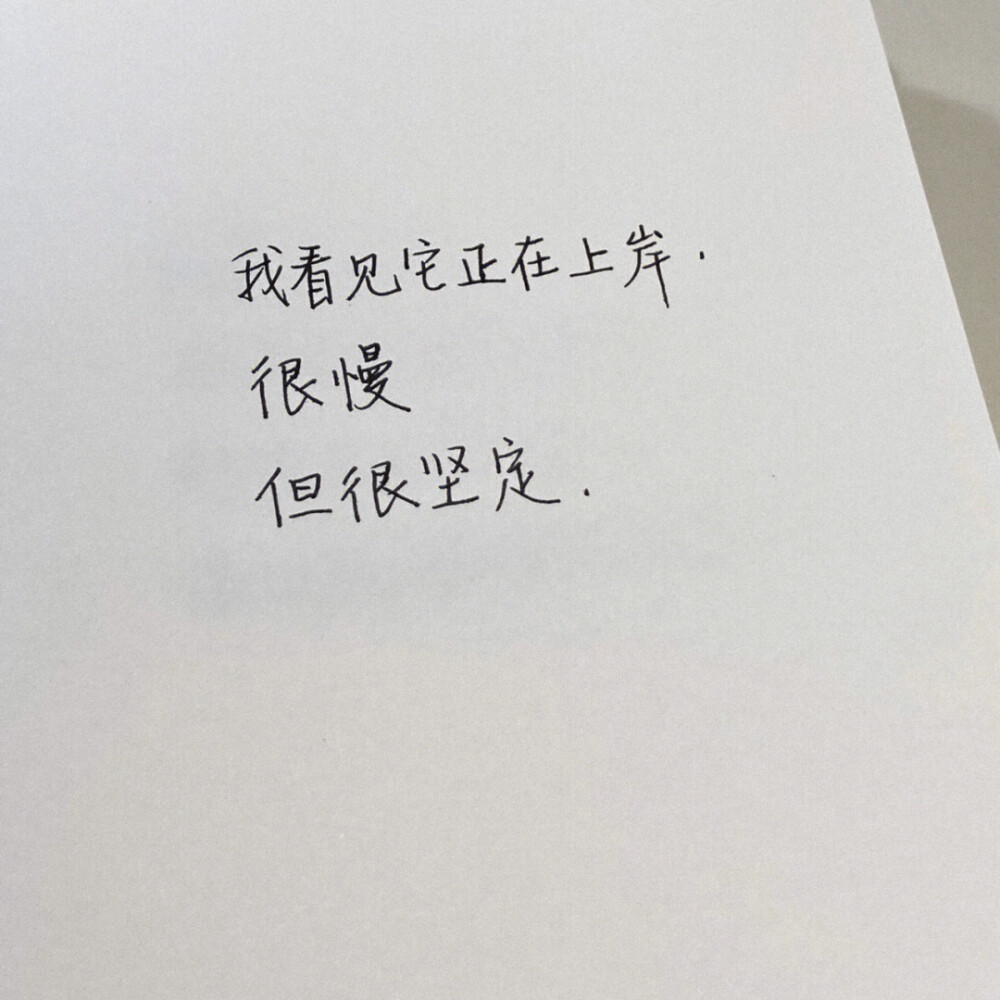 我看见它正在上岸.
很慢
但很坚定.